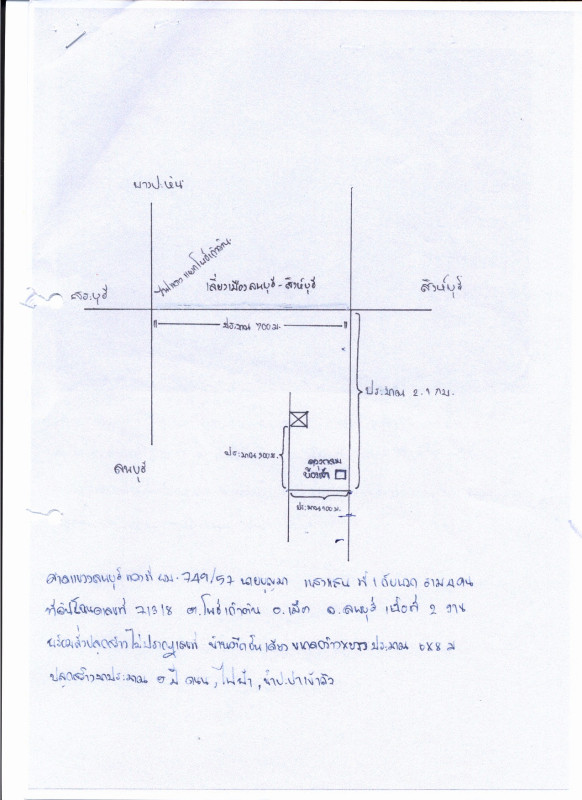 บางปะหัน
ไฟแดง แยกโพธิ์เก้าต้น
เลี่ยงเมืองลพบุรี - สิงห์บุรี
สระบุรี
สิงห์บุรี
ประมาณ 700 ม.
ประมาณ 2.1 กม.
ประมาณ 300 ม.
ลพบุรี
ประมาณ 100 ม.
ศาลแขวงลพบุรี แดงที่ ผบ. 749/57 นายบุญมา ที่ 1 กับพวก รวม 4 คน
ที่ดินโฉนดเลขที่ 71318 ต.โพธิ์เก้าต้น อ.เมือง จ.ลพบุรี เนื้อที่ 2 งาน
พร้อมสิ่งปลูกสร้างไม่ปรากฏเลขที่ บ้านตึกชั้นเดียว ขนาดกว้างxยาว ประมาณ 6x8 ม
ปลูกสร้างมาประมาณ ปี ถนน, ไฟฟ้า, น้ำประปาเข้าถึง